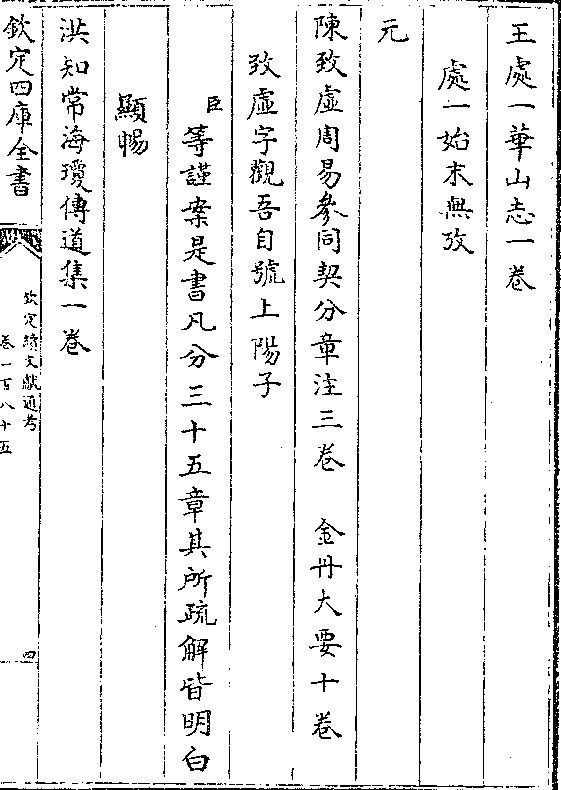 王處一華山志一卷
處一始末無攷
元
陳致虛周易參同契分章注三卷　金丹大要十卷
致虛字觀吾自號上陽子
臣等謹案是書凡分三十五章其所疏解皆明白
顯暢
洪知常海瓊傳道集一卷
欽定四庫全書
欽定續文獻通考
卷一百八十五
四